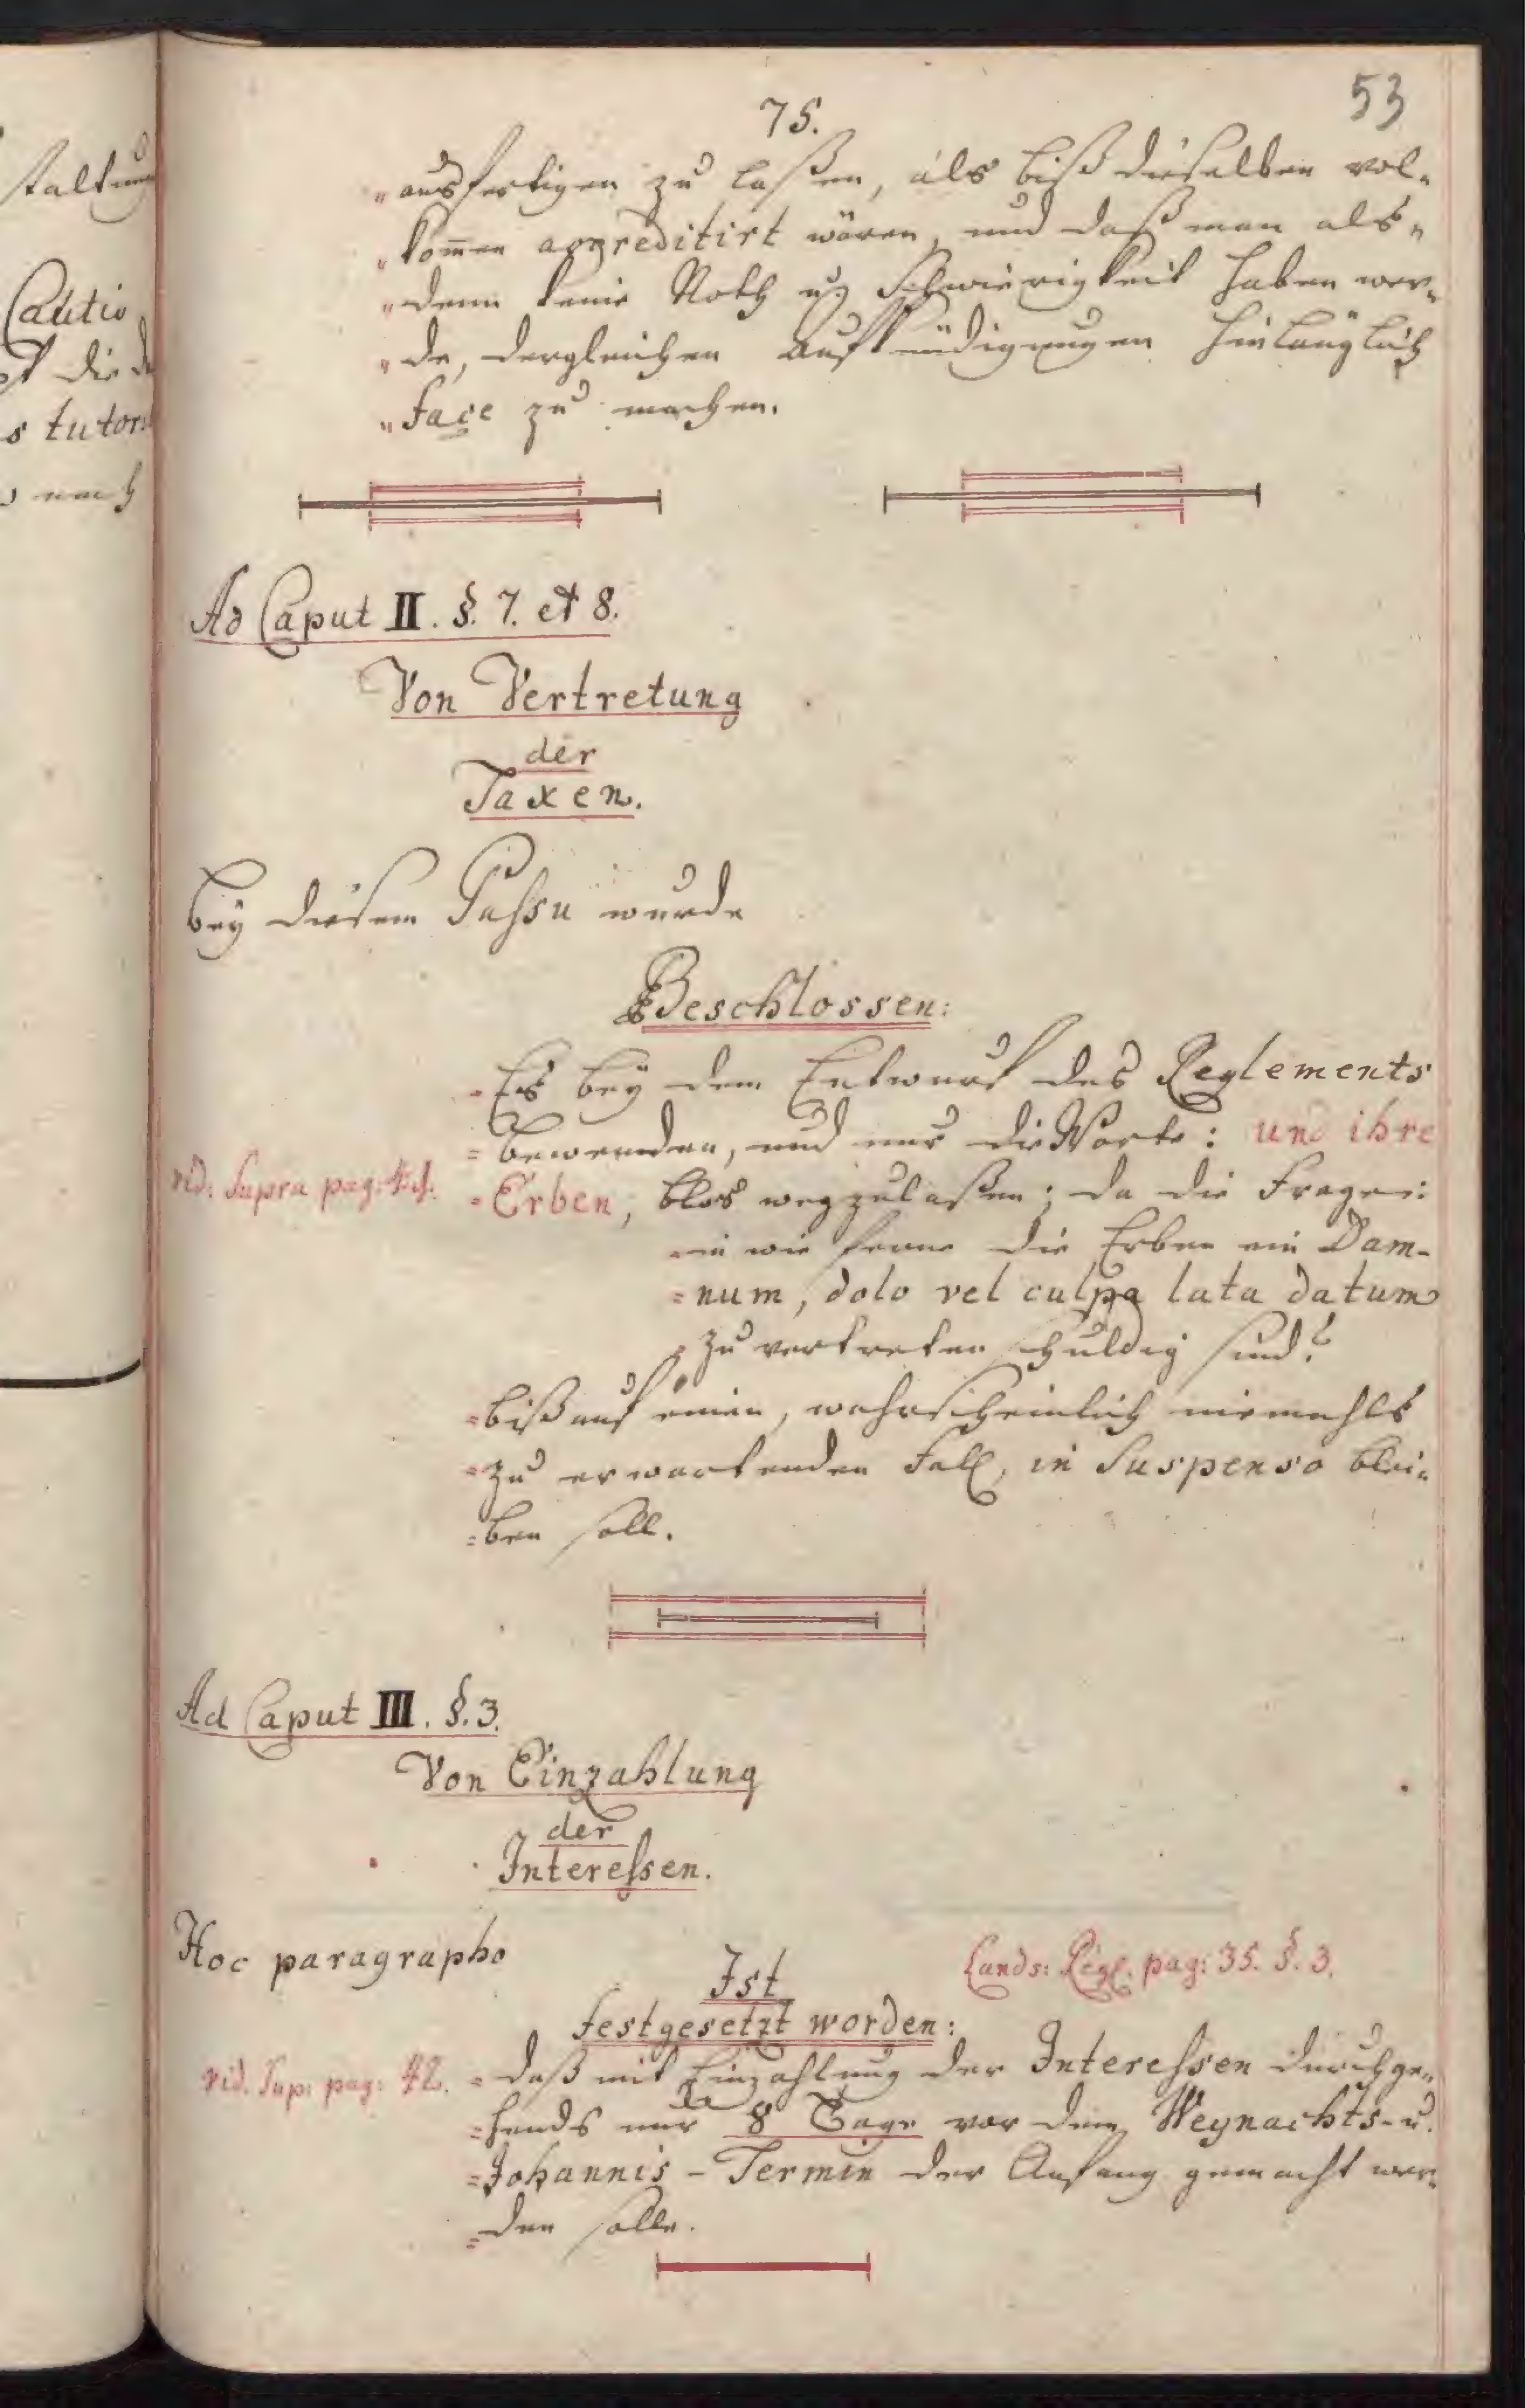 53
75.
„ausfertigen zu laßen, als biß dieselben vol„
„kom̄en accreditirt wären, und daß man als„
„denn keine Noth u. Schwierigkeit haben wer„
„de, dergleichen Aufkündigungen hinlänglich
„face zu machen.
Ad Caput II. §. 7. et 8.
Von Vertretung
der
Taxen.
Bey diesem Passu wurde
Beschlossen:
„Es bey dem Entwurf des Reglements
=bewenden, und nur die Worte: und ihre
vid: Supra pag:
=Erben, blos wegzulaßen; da die Frage:
=in wie ferne die Erben ein Dam-
=num, dolo vel culpa lata datum
=zu vertreten schuldig sind?
=biß auf einen, wahrscheinlich niemahls
=zu erwartenden Fall, in Suspenso blei=
=ben soll.
Ad Caput III. §. 3.
Von Einzahlung
der
Interessen.
Hoc paragrapho
Lands: Regl. pag: 35. §. 3.
Ist
festgesetzt worden:
vid. Sup: pag: 42.
=daß mit Einzahlung der Interessen durchge=
=hends nur 8 Tage vor dem Weynachts- u.
=Johannis-Termin der Anfang gemacht wer=
=den solle.
staltung
Cautio
die
s tutor
nach